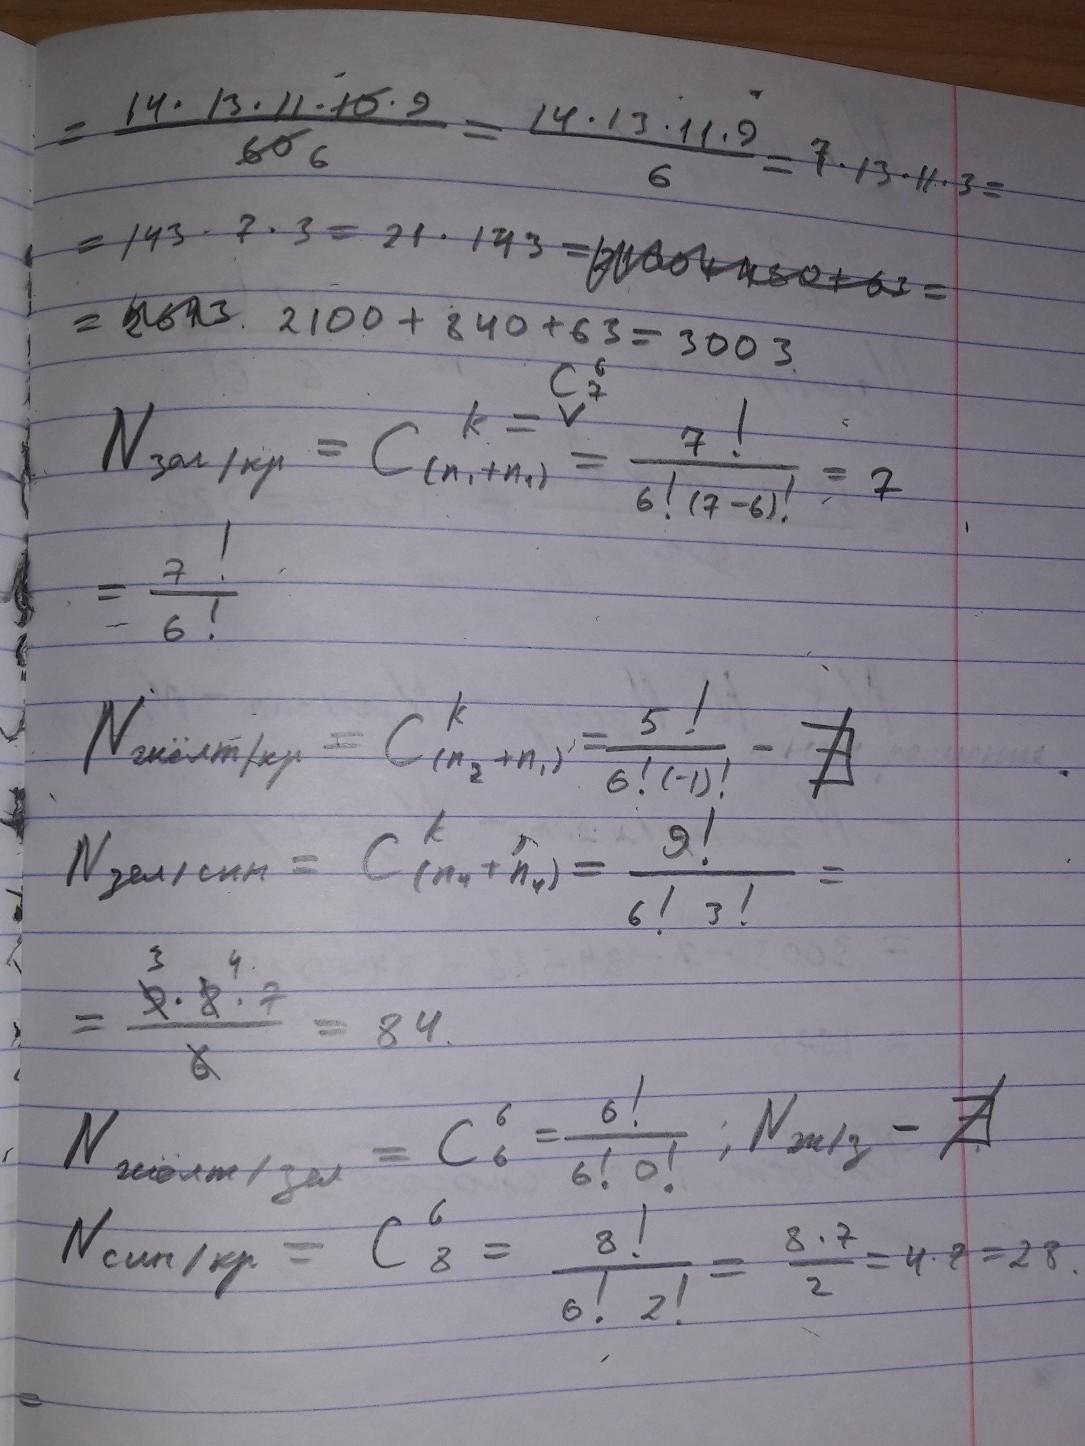 = 14·13·11·10·9 / 60 6 = 14·13·11·9 / 6 = 7·13·11·3 =
= 143·7·3 = 21·143 = =
= 2100 + 840 + 63 = 3003
C₇⁶
N зел/кр = C ᵏ (n₁+n₄) = = 7! / 6!(7-6)! = 7
= 7! / 6!
N жёлт/кр = C ᵏ (n₂+n₁) = 5! / 6!(-1)! - ∄
N зел/син = C ᵏ (n₄+n₄) = 9! / 6! 3! =
3 4
= 9·8·7 / 6 = 84.
N жёлт/зел = C₆⁶ = 6! / 6! 0! ; N ж/з - ∄
N син/кр = C₈⁶ = 8! / 6! 2! = 8·7 / 2 = 4·7 = 28.
=